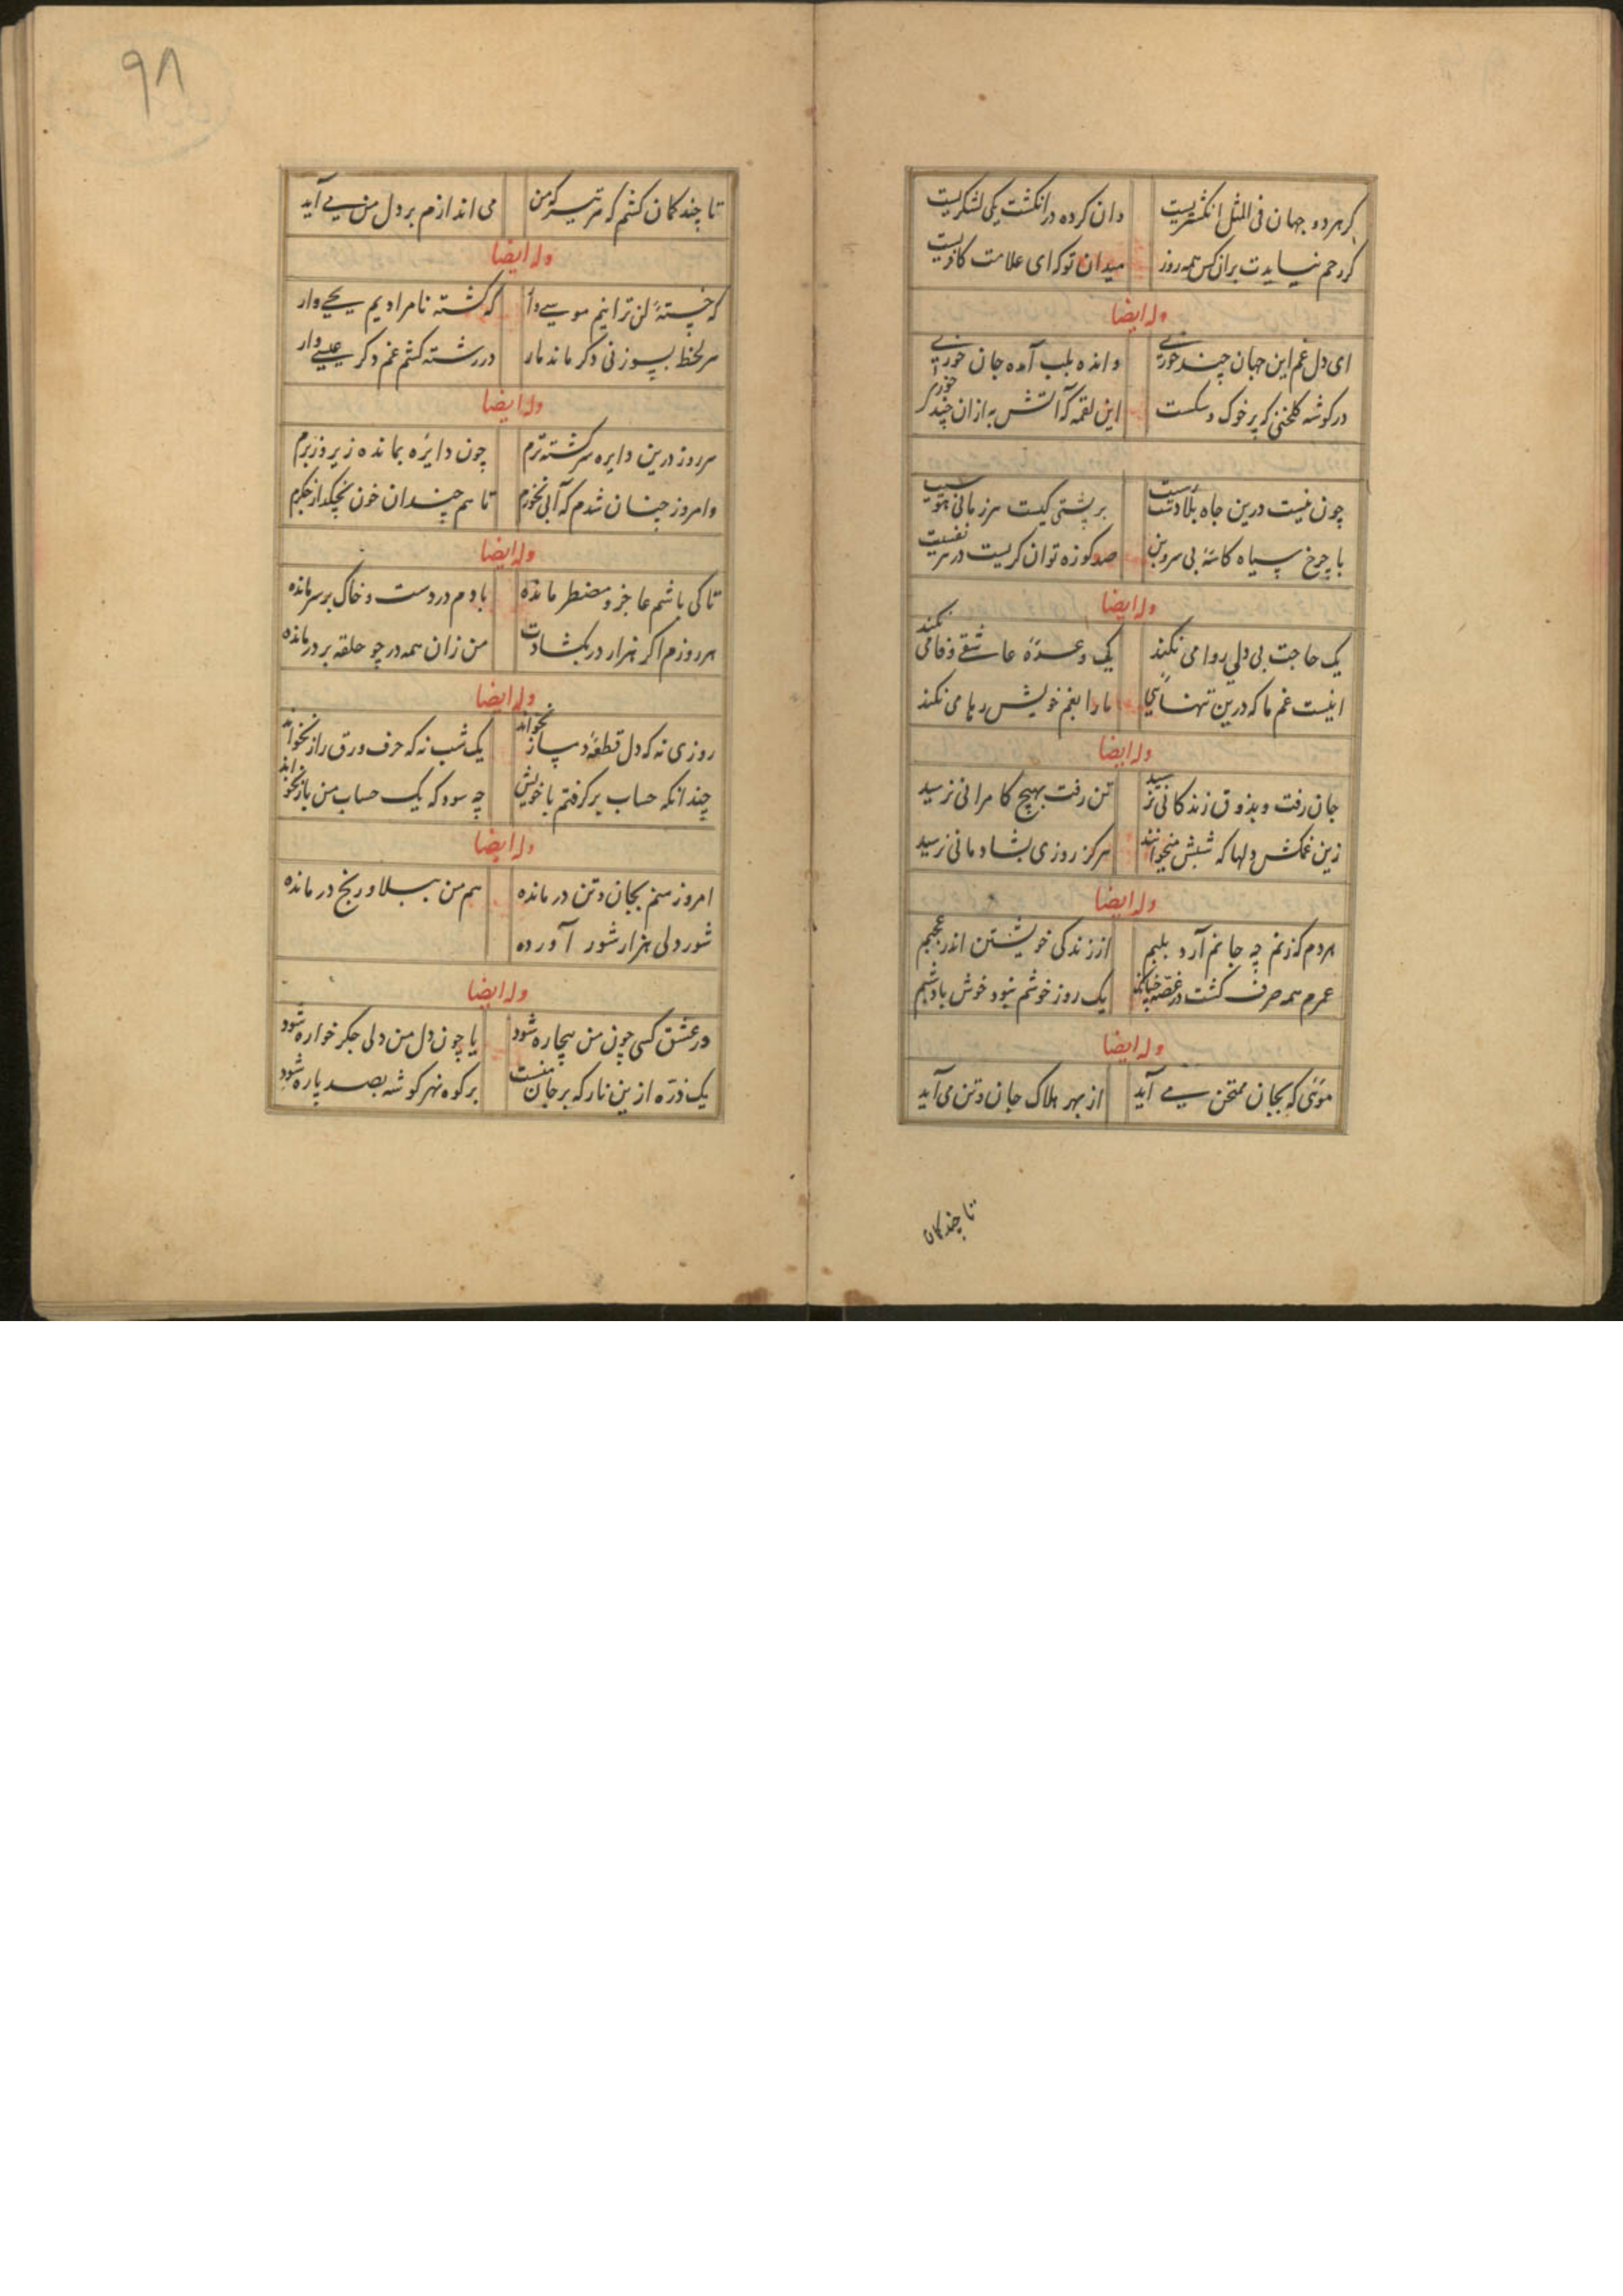 گر هر دو جهان فی المثل انگشتریست وان کرده در انگشت یکی لشکریست
گر رحم نیایدت بر آن کس همه روز میدان تو که ای علامت کافریست
وله ایضا
ای دل غم این جهان چند خوری و انده بلب آمده جان خوری
در گوشه گلخنی که پر خوک و سگست این لقمه که آتش به ازان چند خوری
چون نیست درین چاه بلا دست رست بر پشتی کیست هر زمانی هوست
با چرخ سیاه کاسهٔ بی سر و بن صد کوزه توان گریست در هر نفست
وله ایضا
یک حاجت بی دلی روا می نکند یک وعدهٔ عاشقی وفا می نکند
اینست غم ما که درین تنهایی ما را بغم خویش رها می نکند
وله ایضا
جان رفت و بذوق زندگانی نرسید تن رفت بهیچ کامرانی نرسید
زین غمکش دلها که شبش میخوانند هرگز روزی بشادمانی نرسید
وله ایضا
هر دم که زنم چه جانم آرد بلبم از زندگی خویشتن اندر عجبم
عمرم همه صرف گشت در غصه چنانکه یک روز خوشم نبود خوش باد شبم
وله ایضا
موئی که بجان ممتحن می آید از بهر هلاک جان و تن می آید
تا چند کمان
۹۸
تا چند کمان کشم که هر تیر که من می اندازم بر دل من می آید
وله ایضا
که خستهٔ لن ترانیم موسی وار که کشته نامرادیم یحیی وار
هر لحظه بسوزنی دگر ماند مار در رشته کشم غم دگر عیسی وار
وله ایضا
هر روز درین دایره سرگشته ترم چون دایره بمانده زیر و زبرم
وامروز چنان شدم که آبی نخورم تا هم چندان خون نچکد از جگرم
وله ایضا
تا کی باشم عاجز و مضطر مانده بادم در دست و خاک بر سر مانده
هر روزم اگر هزار در بگشادت من زان همه در چو حلقه بر در مانده
وله ایضا
روزی نه که دل قطعهٔ دمساز نخواند یک شب نه که حرف ورق راز نخواند
چندانکه حساب برگرفتم با خویش چه سود که یک حساب من باز نخواند
وله ایضا
امروز منم بجان و تن درمانده هم من ببلا و رنج درمانده
شور دلی هزار شور آورده
وله ایضا
در عشق کسی چون من بیچاره شود یا چون دل من دلی جگر خواره شود
یک ذره ازین نار که بر جان منست بر کوه نهم گوشه بصد پاره شود